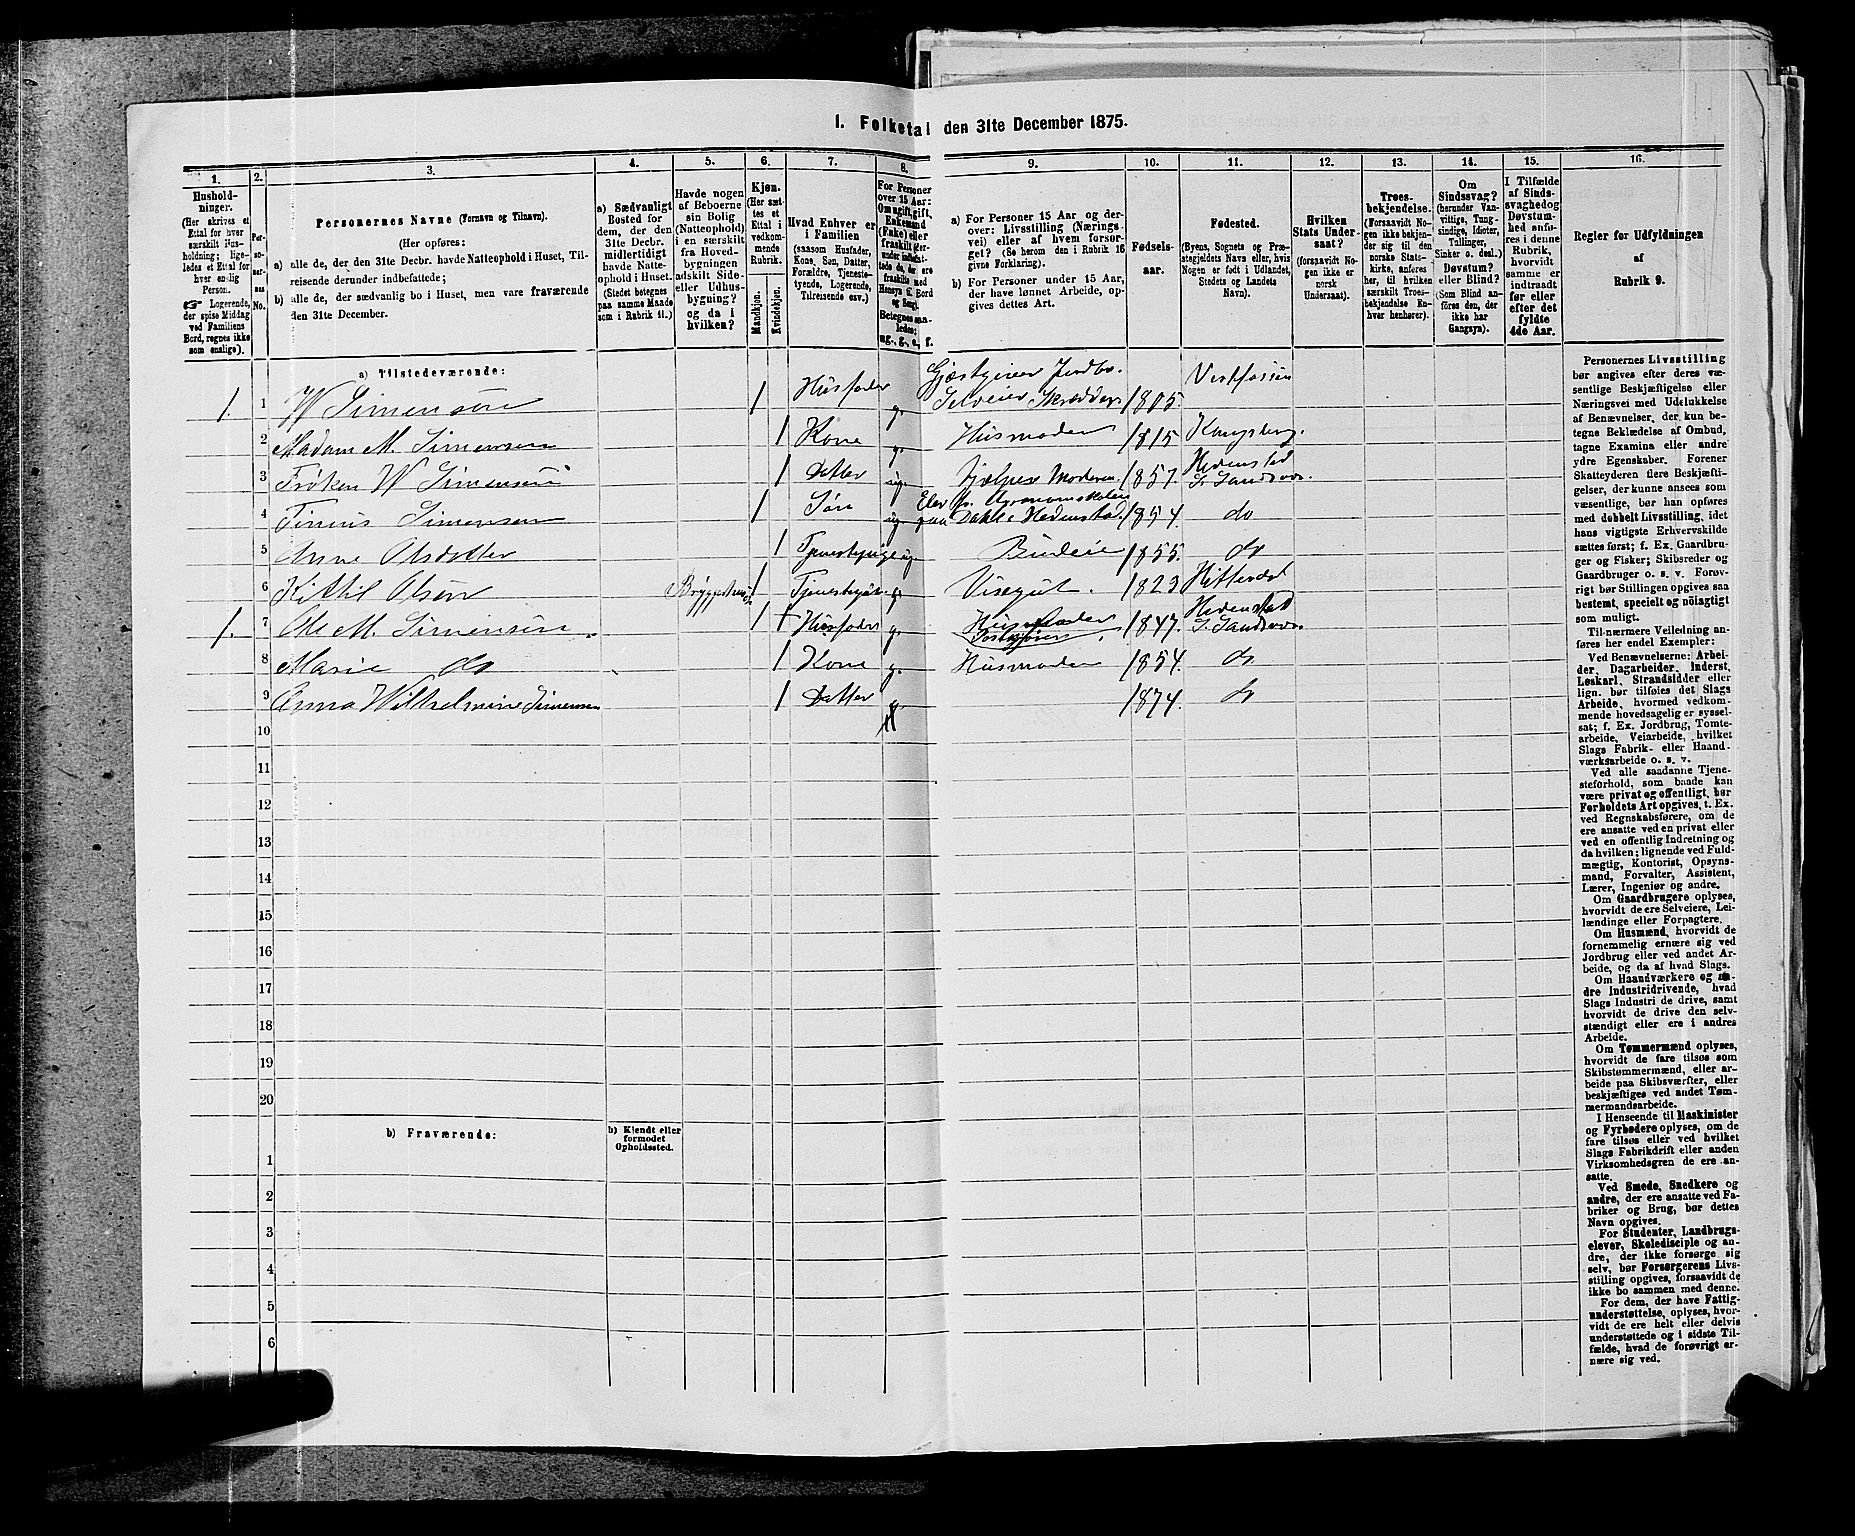 1. Folketal den 31te December 1875.
1. 2. 3. 4. 5. 6. 7. 8. 9. 10. 11. 12. 13. 14. 15. 16.
Hushold-
ninger.
(Her skrives et
Ettal for hver
særskilt Hus-
holdning; lige-
ledes et Ettal for
hver enslig
Person.
☞ Logerende,
der spise Middag
ved Familiens
Bord, regnes ikke
som enslige).
Per-
so-
ner-
nes
No.
Personernes Navne (Fornavn og Tilnavn).
(Her opføres:
a) alle de, der den 31te Decbr. havde Natteophold i Huset, Til-
reisende derunder indbefattede;
b) alle de, der sædvanlig bo i Huset, men vare fraværende
den 31te December.
a) Sædvanligt
Bosted for
dem, der den
31te Decbr.
midlertidigt
havde Natte-
ophold i Huset.
(Stedet betegnes
paa samme Maade
som i Rubrik 11.)
Havde nogen
af Beboerne
sin Bolig
(Natteophold)
i en særskilt
fra Hoved-
bygningen
adskilt Side-
eller Udhus-
bygning?
og da i
hvilken?
Kjøn.
(Her sæt-
tes et
Ettal i
vedkom-
mende
Rubrik.
Mandkjøn.
Kvindekjøn.
Hvad Enhver er
i Familien
(saasom Husfader,
Kone, Søn, Datter,
Forældre, Tjeneste-
tyende, Logerende,
Tilreisende osv.)
For Personer
over 15 Aar:
Om ugift, gift,
Enkemand
(Enke) eller
fraskilt
Betegnes saa-
ledes:
ug., g., e., f.
a) For Personer 15 Aar og der-
over: Livsstilling (Nærings-
vei) eller af hvem forsør-
get? (Se herom den i Rubrik 16
givne Forklaring).
b) For Personer under 15 Aar,
der have lønnet Arbeide, op-
gives dettes Art.
Fødsels-
aar.
Fødested.
(Byens, Sognets og Præ-
stegjeldets Navn eller, hvis
Nogen er født i Udlandet,
Stedets og Landets
Navn).
Hvilken
Stats Under-
saat?
(forsaavidt No-
gen ikke er
norsk
Undersaat).
Troes-
bekjendelse.
(Forsaavidt No-
gen ikke bekjen-
der sig til den
norske Stats-
kirke, anføres
her, til hvilken
særskilt Troes-
bekjendelse En-
hver henhører).
Om
Sindssvag?
(herunder Van-
vittige, Tung-
sindige, Idioter,
Tullinger,
Sinker o. desl.).
Døvstum?
eller Blind?
(Som Blind an-
føres den, der
ikke har
Gangsyn).
I Tilfælde
af Sinds-
svaghed og
Døvstum-
hed anfø-
res i denne
Rubrik,
hvorvidt
samme er
indtraadt
før eller
efter det
fyldte
4de Aar.
Regler for Udfyldningen
af
Rubrik 9.
a) Tilstedeværende:
1. 1 W Simensøn 1 Husfader g. Gjæstgiver Jordbr. Selveier Skrædder 1805. Vestfossen
2 Madam M. Simensen 1 Kone g. Husmoder 1815 Kongsberg.
3 Frøken W Simensen 1 Datter ug. hjælper Moderen 1857. Hedenstad S. Sandsvær.
4 Simensen 1 Søn ug. Elev paa Hedenstad. 1854. do
5 Anne Olsdatter 1 Tjenestepige ug. Budeie 1855. do
6 Kittil Olsen Bryggerhus 1 g. Visergut. 1823 Hitterdal
1. 7 Ole M. Simensen. 1 Husfader g. Husfader 1847. Hedenstad S. Sandsvær
8 Marie do 1 Kone g. Husmoder 1854. do
9 Anna Wilhelmine Simensen 1 Datter g. 1874. do
10
11
12
13
14
15
16
17
18
19
20
b) Fraværende:
b) Kjendt eller
formodet
Opholdssted.
1
2
3
4
5
6
Personernes Livsstilling
bør angives efter deres væ-
sentlige Beskjæftigelse eller
Næringsvei med Udelukkelse
af Benævnelser, der kun be-
tegne Beklædelse af Ombud,
tagne Examina eller andre
ydre Egenskaber. Forener
Skatteyderen flere Beskjæfti-
gelser, der kunne ansees som
væsentlige, bør han opføres
med dobbelt Livsstilling, idet
hans vigtigste Erhvervskilde
sættes først; f. Ex. Gaardbru-
ger og Fisker; Skibsreder og
Gaardbruger o. s. v. Forøv-
rigt bør Stillingen opgives saa
bestemt, specielt og nöiagtigt
som muligt.
Til nærmere Veiledning an-
føres her endel Exempler:
Ved Benævnelserne: Arbei-
der, Dagarbeider, Inderst,
Løskarl, Strandsidder eller
lign. bør tilføies det Slags
Arbeide, hvormed vedkom-
mende hovedsagelig er syssel-
sat; f. Ex. Jordbrug, Tomte-
arbeide, Veiarbeide, hvilket
Slags Fabrik- eller Haand-
værksarbeide o. s. v.
Ved alle saadanne Tjene-
steforhold, som baade kan
være privat og offentligt, bør
Forholdets Art opgives, t. Ex.
ved Regnskabsførere, om de
ere ansatte ved en privat eller
ved en offentlig Indretning og
da hvilken; lignende ved Fuld-
mægtig, Kontorist, Opsyns-
mand, Forvalter, Assistent,
Lærer, Ingeniør og andre.
Om Gaardbrugere oplyses,
hvorvidt de ere Selveiere, Lei-
lændinge eller Forpagtere.
Om Husmænd, hvorvidt de
fornemmelig ernære sig ved
Jordbrug eller ved andet Ar-
beide, og da af hvad Slags.
Om Haandværkere og an-
dre Industridrivende, hvad
Slags Industri de drive, samt
hvorvidt de drive den selv-
stændigt eller ere i andres
Arbeide.
Om Tømmermænd oplyses,
hvorvidt de fare tilsøs som
Skibstømmermænd, eller ar-
beide paa Skibsværfter, eller
beskjæftiges ved andet Tøm-
mermandsarbeide.
I Henseende til Maskinister
og Fyrbødere oplyses, om de
fare tilsøs eller ved hvilket
Slags Fabrikdrift eller anden
Virksomhedsgren de ere an-
satte.
Ved Smede, Snedkere og
andre, der ere ansatte ved Fa-
briker og Brug, bør dettes
Navn opgives.
For Studenter, Landbrugs-
elever, Skoledisciple og an-
dre, der ikke forsørge sig
selv, bør Forsørgerens Livs-
stilling opgives, forsaavidt de
ikke bo sammen med denne.
For dem, der have Fattig-
understøttelse, oplyses, hvor-
vidt de ere helt eller delvis
understøttede og i sidste Til-
fælde, hvad de forøvrigt er-
nære sig ved.